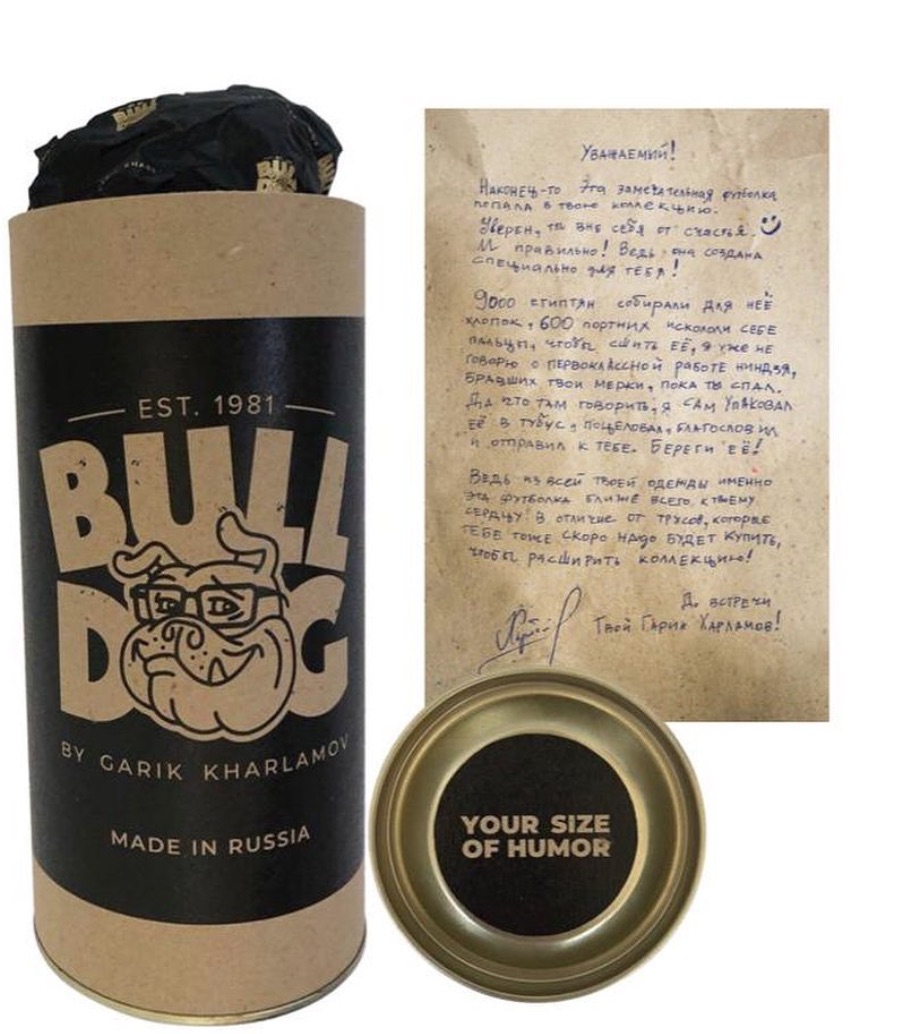 BULL
BULL
DOG
EST. 1981
BULL
DOG
BY GARIK KHARLAMOV
MADE IN RUSSIA
Уважаемий!
Наконец-то Эта замечательная футболка
попала в твою коллекцию.
Уверен, ты вне себя от счастья.
И правильно! Ведь она создана
специально для тебя!
9000 египтян собирали для неё
хлопок, 600 портних искололи себе
пальцы, чтобы сшить её, я уже не
говорю о первоклассной работе ниндзя,
бравших твои мерки, пока ты спал.
Да что там говорить, я сам упаковал
её в тубус, поцеловал, благословил
и отправил к тебе. Береги её!
Ведь из всей твоей одежды именно
эта футболка ближе всего к твоему
сердцу в отличие от трусов, которые
тебе тоже скоро надо будет купить,
чтобы расширить коллекцию!
До встречи
Твой Гарик Харламов!
YOUR SIZE
OF HUMOR